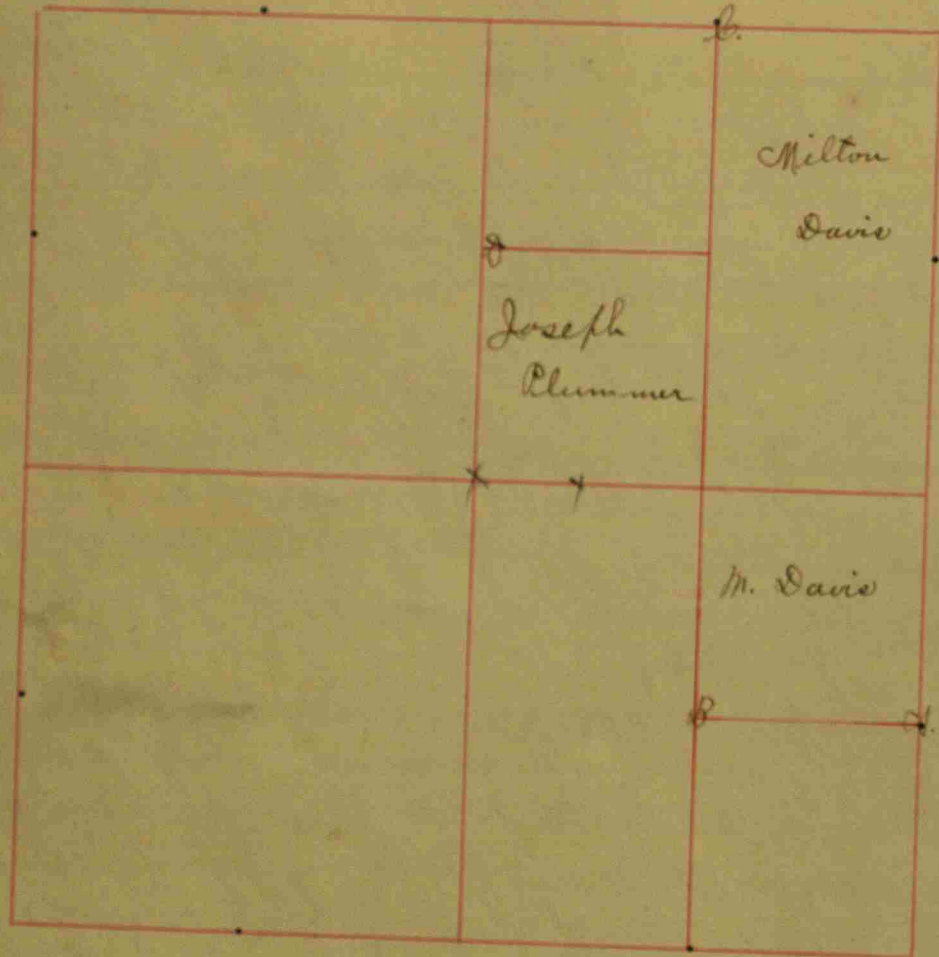 C.
Milton
Davis
D
Joseph
Plummer
X
M. Davis
B
A.